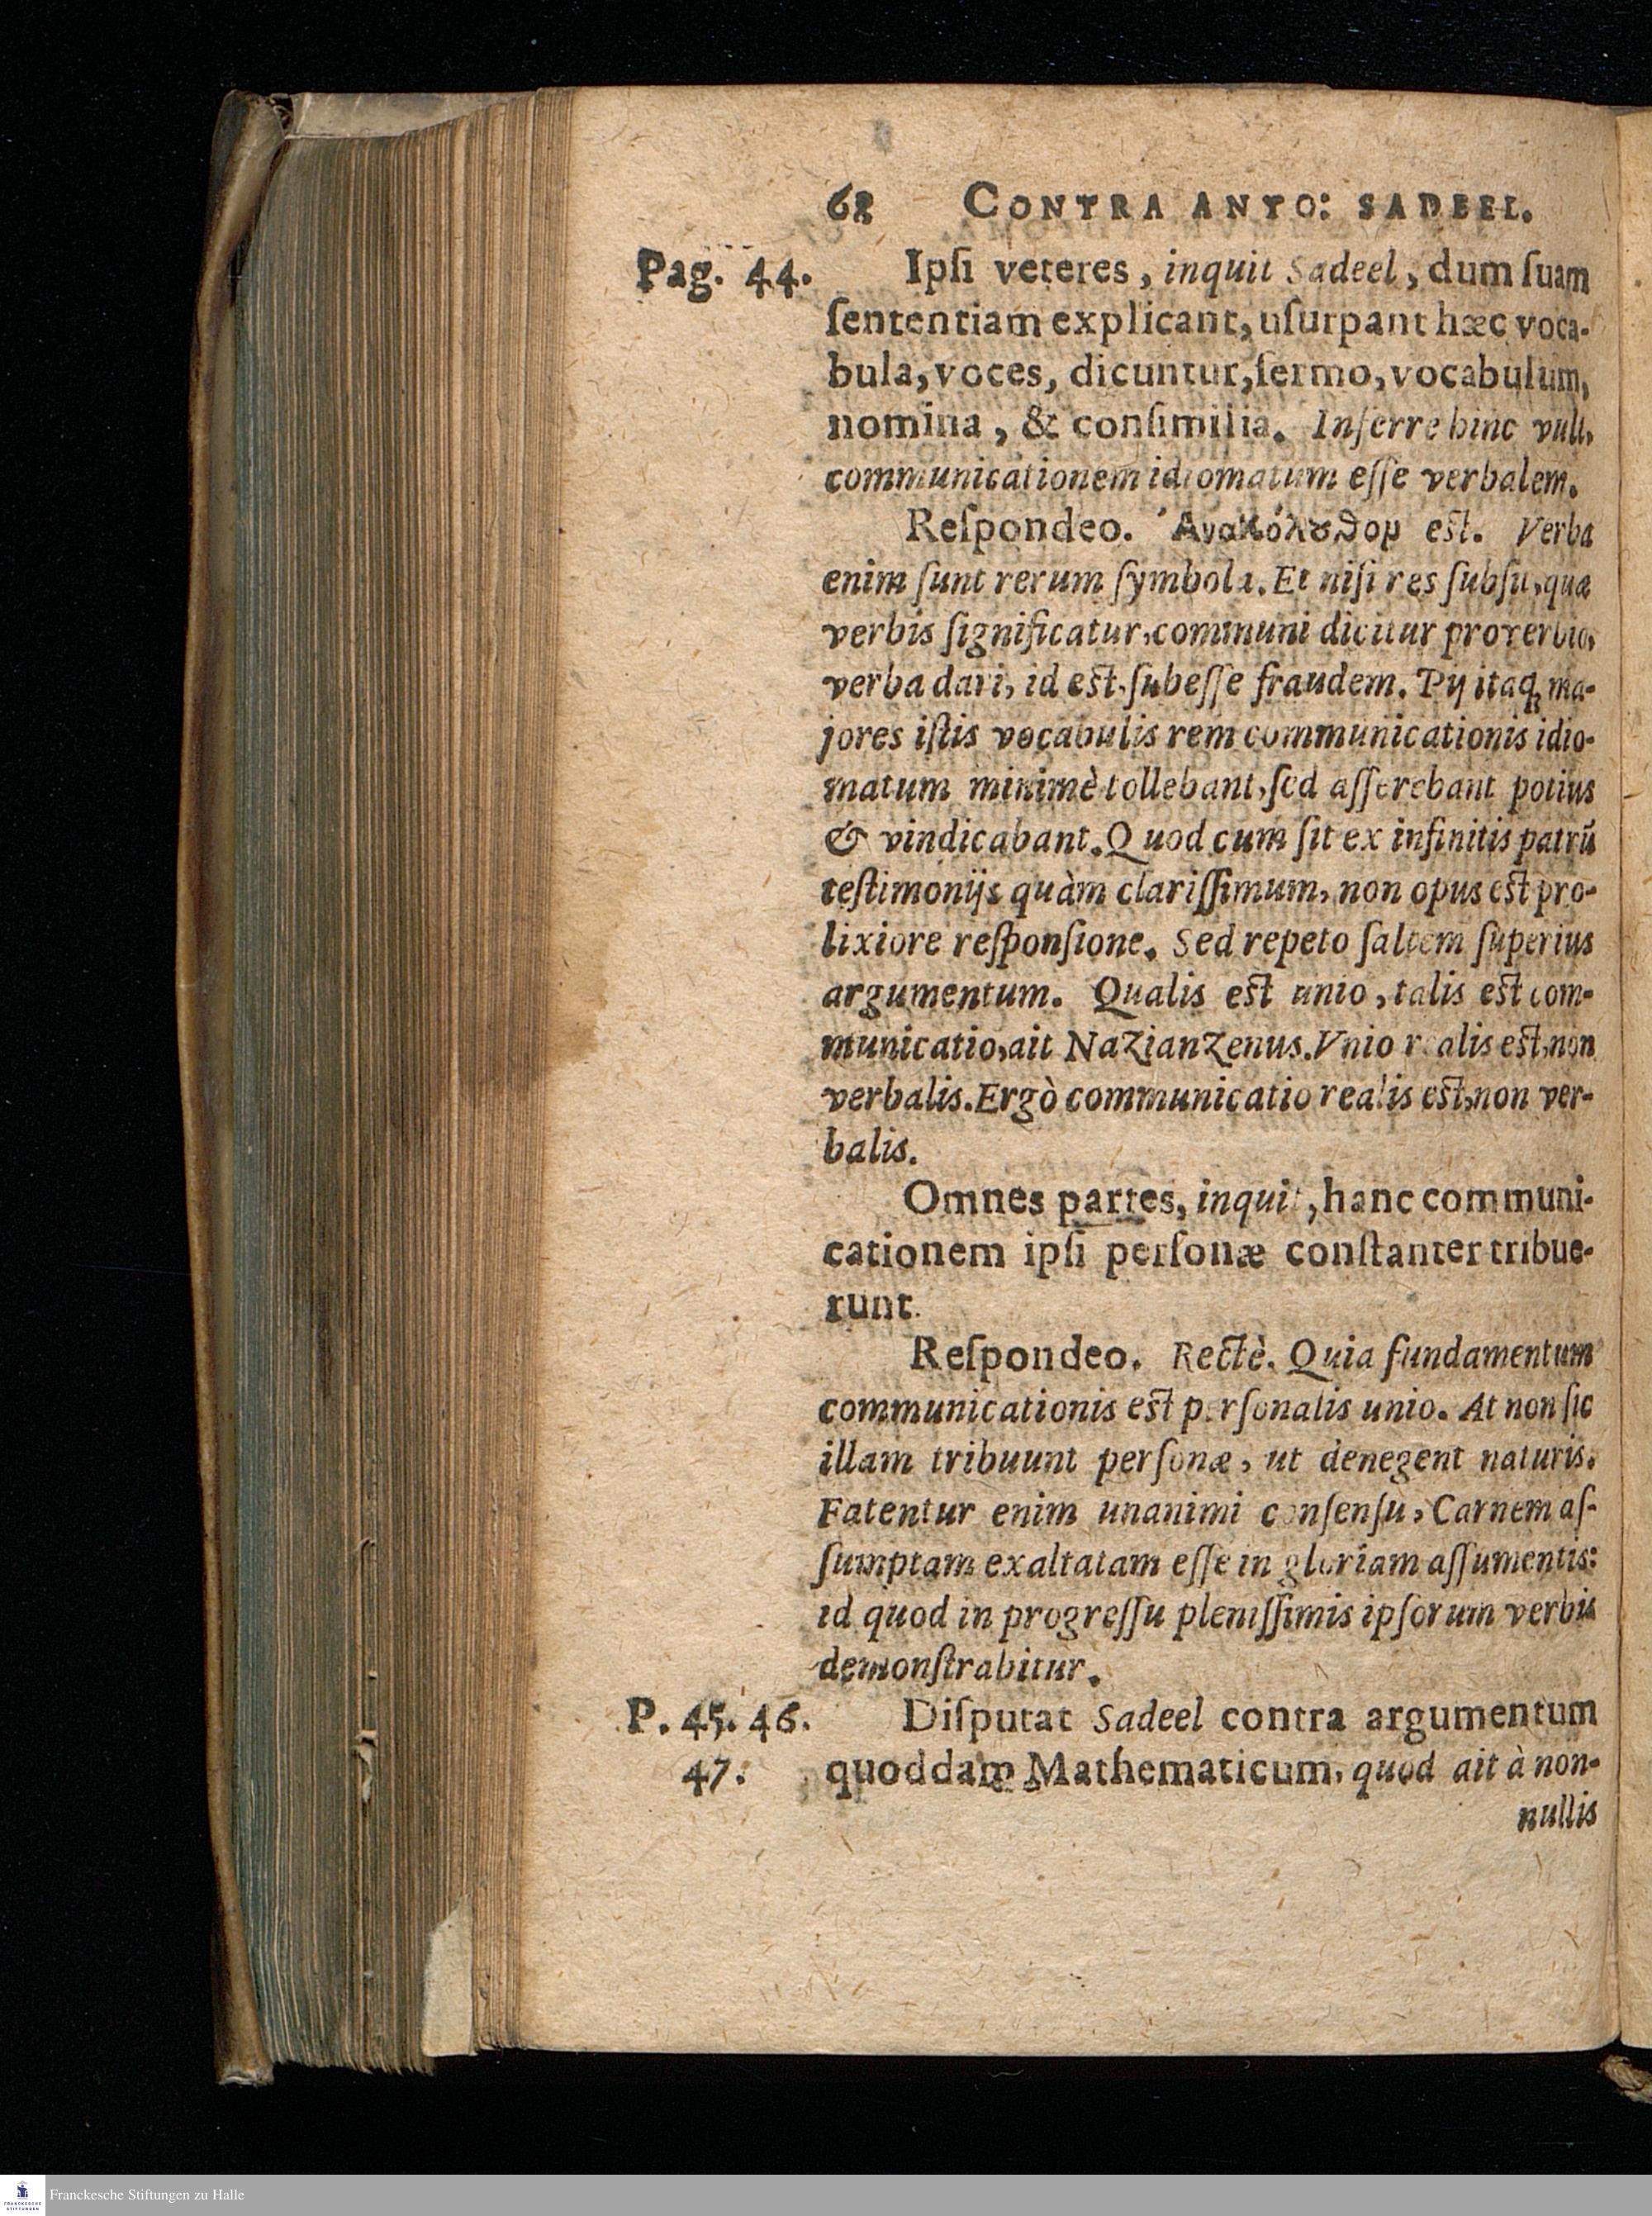 68 CONTRA ANTO: SADEEL.
Pag. 44.
Ipſi veteres, inquit Sadeel, dum ſuam
ſententiam explicant, uſurpant hæc voca-
bula, voces, dicuntur, ſermo, vocabulum,
nomina, & conſimilia. Inferre hinc vult,
communicationem idiomatum eſſe verbalem.
Reſpondeo. Ἀνακόλȣθον eſt. Verba
enim ſunt rerum ſymbola. Et niſi res ſubſit, quæ
verbis ſignificatur, communi dicitur proverbio,
verba dari, id eſt, ſubeſſe fraudem. Pij itaq; ma-
jores iſtis vocabulis rem communicationis idio-
matum minimè tollebant, ſed aſſerebant potius
& vindicabant. Quod cum ſit ex infinitis patrũ
teſtimonijs quàm clariſſimum, non opus eſt pro-
lixiore reſponſione. Sed repeto ſaltem ſuperius
argumentum. Qualis eſt unio, talis eſt com-
municatio, ait Nazianzenus. Vnio realis eſt, non
verbalis. Ergò communicatio realis eſt, non ver-
balis.
Omnes partes, inquit, hanc communi-
cationem ipſi perſonæ conſtanter tribue-
runt.
Reſpondeo. Rectè. Quia fundamentum
communicationis eſt perſonalis unio. At non ſic
illam tribuunt perſonæ, ut denegent naturis.
Fatentur enim unanimi conſenſu, Carnem aſ-
ſumptam exaltatam eſſe in gloriam aſſumentis:
id quod in progreſſu pleniſſimis ipſorum verbis
demonſtrabitur.
P. 45. 46.
47.
Diſputat Sadeel contra argumentum
quoddam Mathematicum, quod ait à non-
nullis
FRANCKESCHE
STIFTUNGEN
Franckesche Stiftungen zu Halle